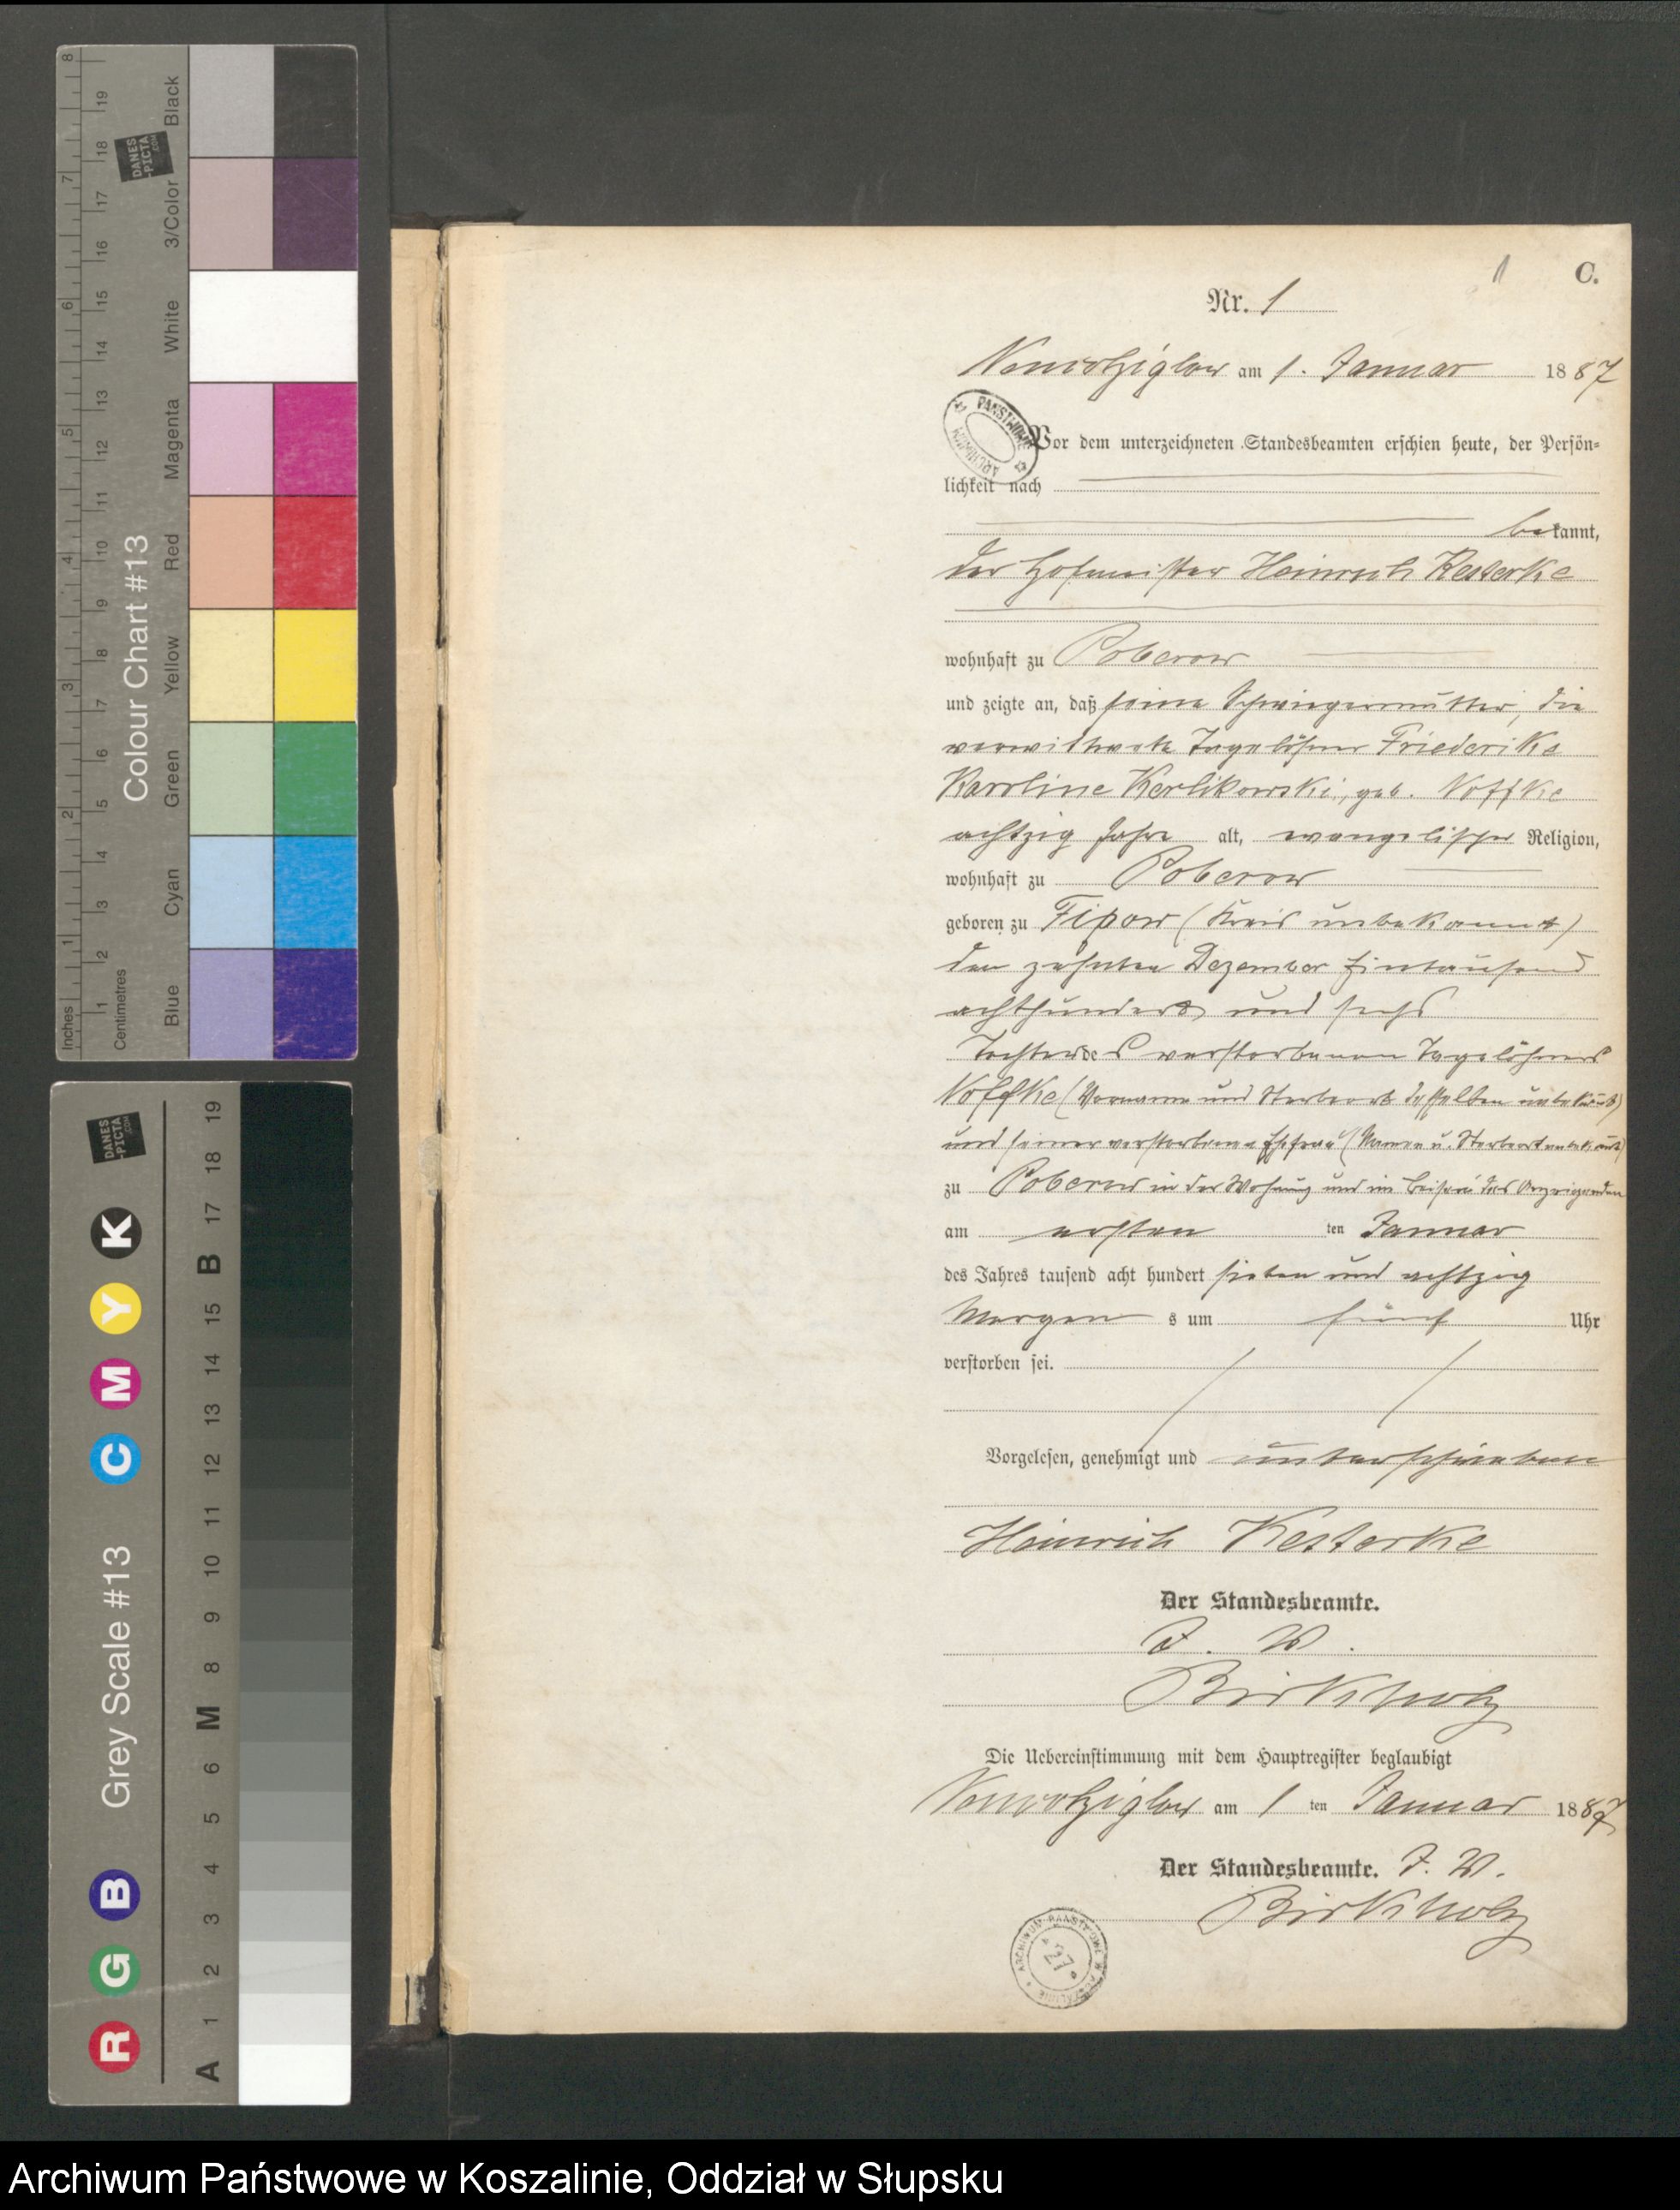 C.
1
Nr. 1
am 1. Januar 1887
Vor dem unterzeichneten Standesbeamten erschien heute, der Persön-
lichkeit nach
bekannt,
der Hofmeister Heinrich Kesterke
wohnhaft zu Poberow
und zeigte an, daß seine Schwiegermutter, die
verwittwete Tagelöhner Friederike
Karoline Kerlikowski, geb. Noffke
achtzig Jahre alt, evangelischer Religion,
wohnhaft zu Poberow
geboren zu Fipow (Kreis unbekannt)
den zehnten Dezember Eintausend
achthundert und sechs
Tochter des verstorbenen Tagelöhners
Noffke (Vorname und Sterbeort desselben unbekannt)
und seiner verstorbenen Ehefrau (Namen u. Sterbeort unbekannt)
zu Poberow in der Wohnung und im Beisein des Anzeigenden
am ersten ten Januar
des Jahres tausend acht hundert sieben und achtzig
Morgens um fünf Uhr
verstorben sei.
Vorgelesen, genehmigt und unterschrieben
Heinrich Kesterke
Der Standesbeamte.
J. V.
Birkholz
Die Uebereinstimmung mit dem Hauptregister beglaubigt
am 1 ten Januar 1887
Der Standesbeamte. J. V.
Birkholz
ARCHIWUM PAŃSTWOWE W KOSZALINIE
27
Inches
Centimetres
Colour Chart #13
Blue Cyan Green Yellow Red Magenta White 3/Color Black
DANES
-PICTA
.COM
1 2 3 4 5 6 7 8
1 2 3 4 5 6 7 8 9 10 11 12 13 14 15 16 17 18 19
Grey Scale #13
R G B C M Y K
DANES
-PICTA
.COM
A 1 2 3 4 5 6 M 8 9 10 11 12 13 14 15 B 17 18 19
Archiwum Państwowe w Koszalinie, Oddział w Słupsku